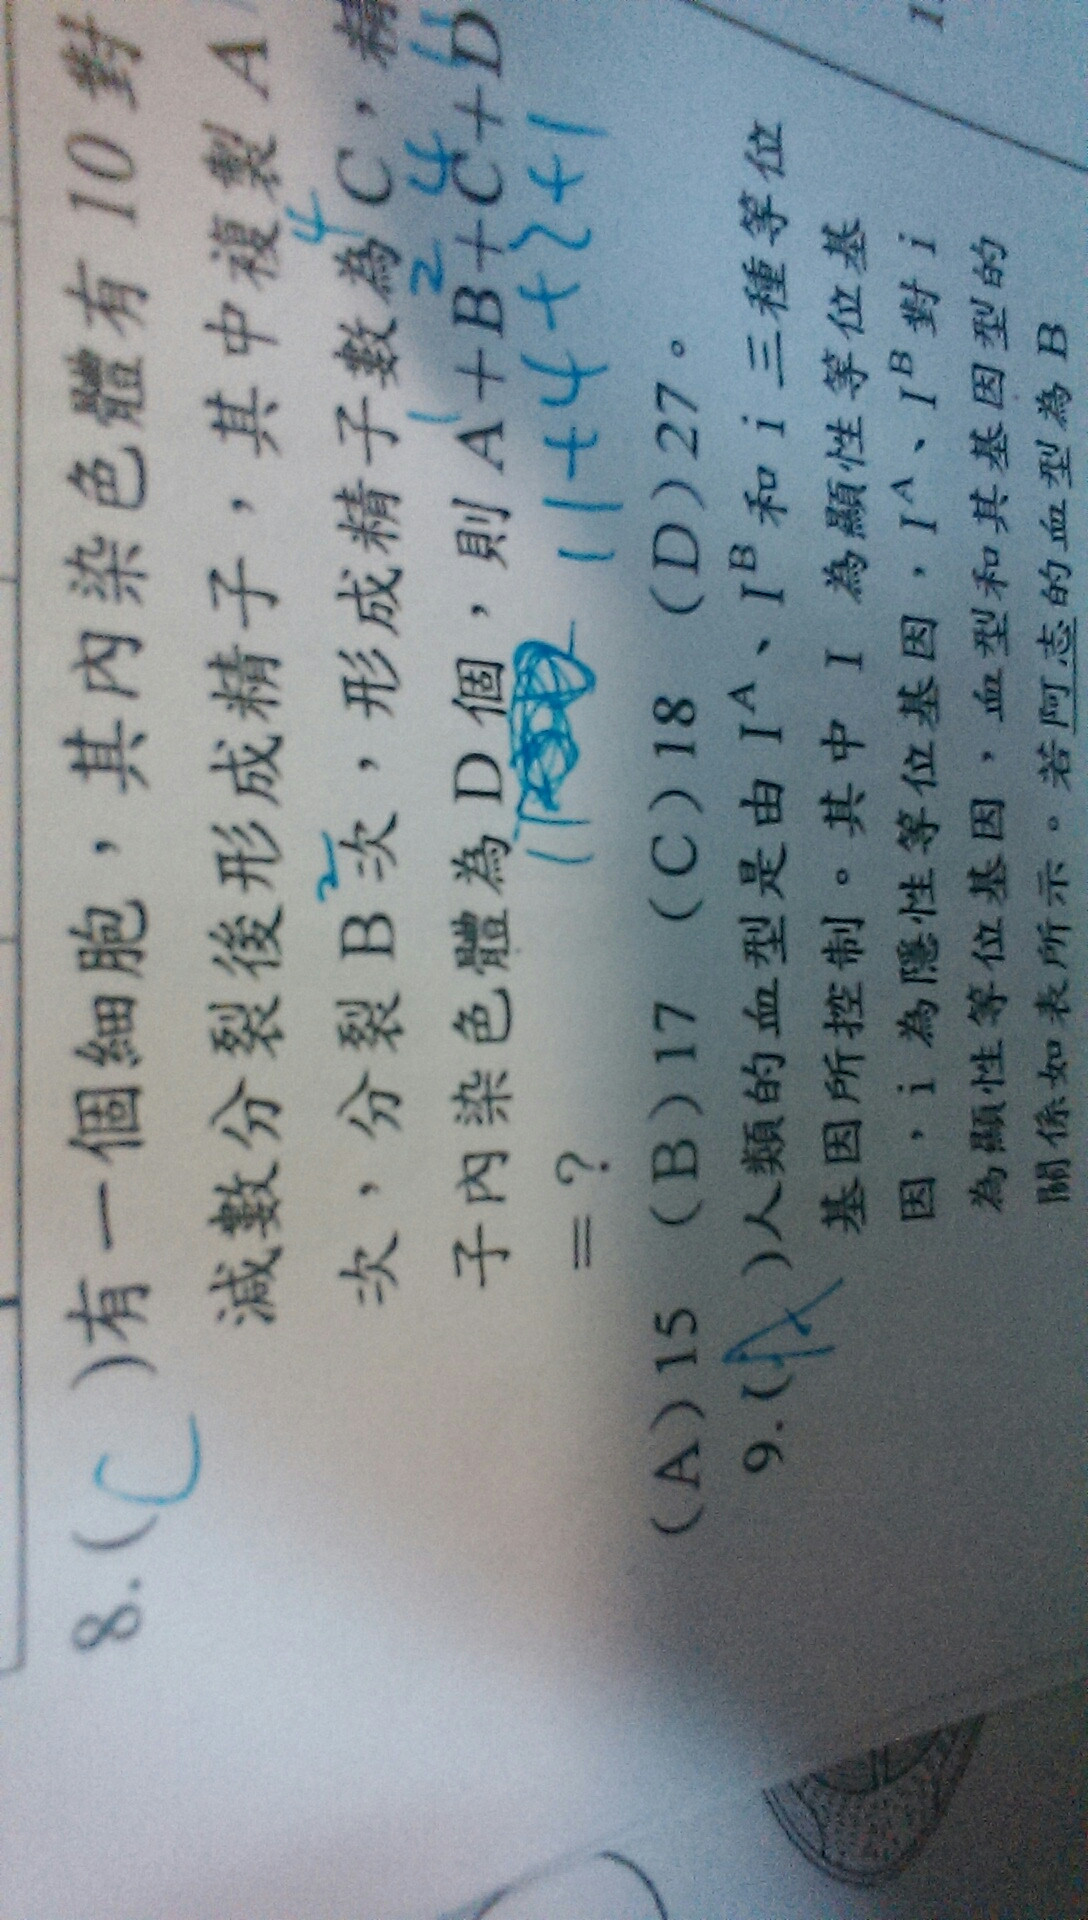 8.(C)有一個細胞，其內染色體有 10 對
減數分裂後形成精子，其中複製 A
次，分裂 B 次，形成精子數為 C，精
2 4
子內染色體為 D 個，則 A+B+C+D
1 2 4 11
=?
11+4+2+1
(A)15 (B)17 (C)18 (D)27。
9.(A)人類的血型是由 Iᴬ、Iᴮ 和 i 三種等位
基因所控制。其中 I 為顯性等位基
因，i 為隱性等位基因，Iᴬ、Iᴮ 對 i
為顯性等位基因，血型和其基因型的
關係如表所示。若阿志的血型為 B